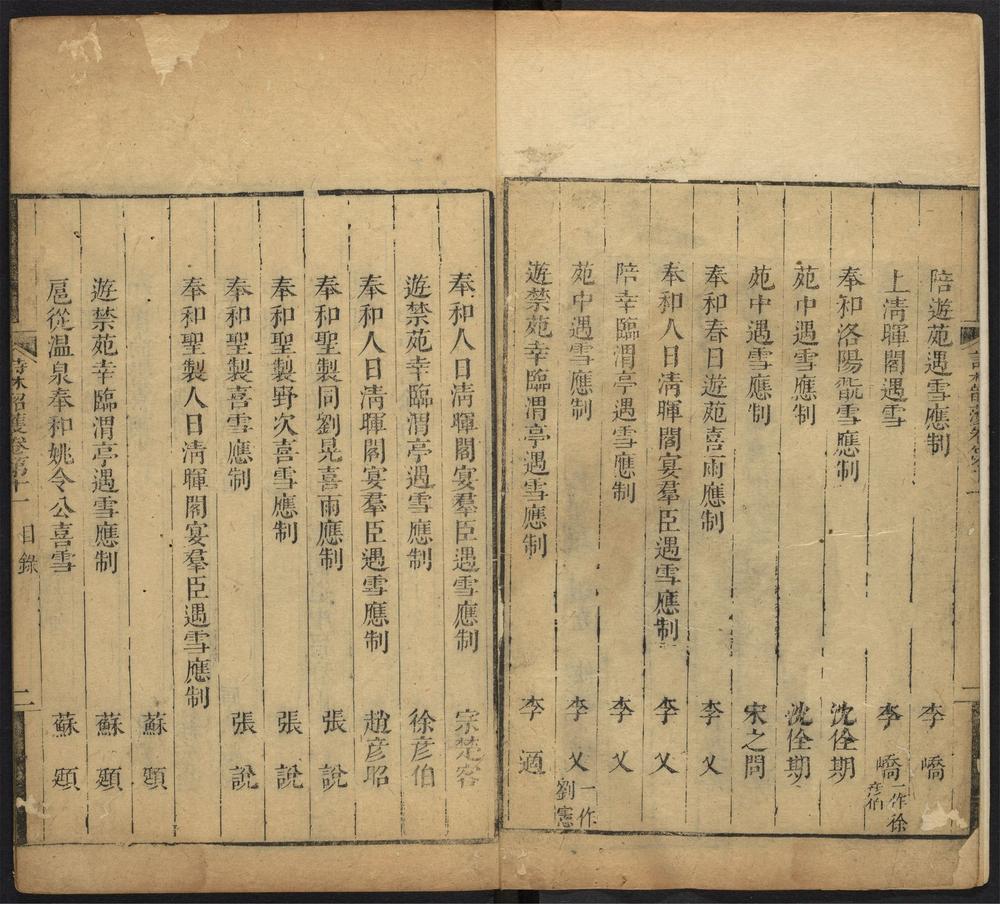 陪遊苑遇雪應制 李嶠
上淸暉閣遇雪 李嶠一作徐彥伯
奉和洛陽翫雪應制 沈佺期
苑中遇雪應制 沈佺期
苑中遇雪應制 宋之問
奉和春日遊苑喜雨應制 李乂
奉和人日淸暉閣宴羣臣遇雪應制 李乂
陪幸臨渭亭遇雪應制 李乂
苑中遇雪應制 李乂一作劉憲
遊禁苑幸臨渭亭遇雪應制 李適
奉和人日淸暉閣宴羣臣遇雪應制 宗楚客
遊禁苑幸臨渭亭遇雪應制 徐彥伯
奉和人日淸暉閣宴羣臣遇雪應制 趙彥昭
奉和聖製同劉晃喜雨應制 張說
奉和聖製野次喜雪應制 張說
奉和聖製喜雪應制 張說
奉和聖製人日淸暉閣宴羣臣遇雪應制 蘇頲
遊禁苑幸臨渭亭遇雪應制 蘇頲
扈從温泉奉和姚令公喜雪 蘇頲
卷第十一 目錄 二